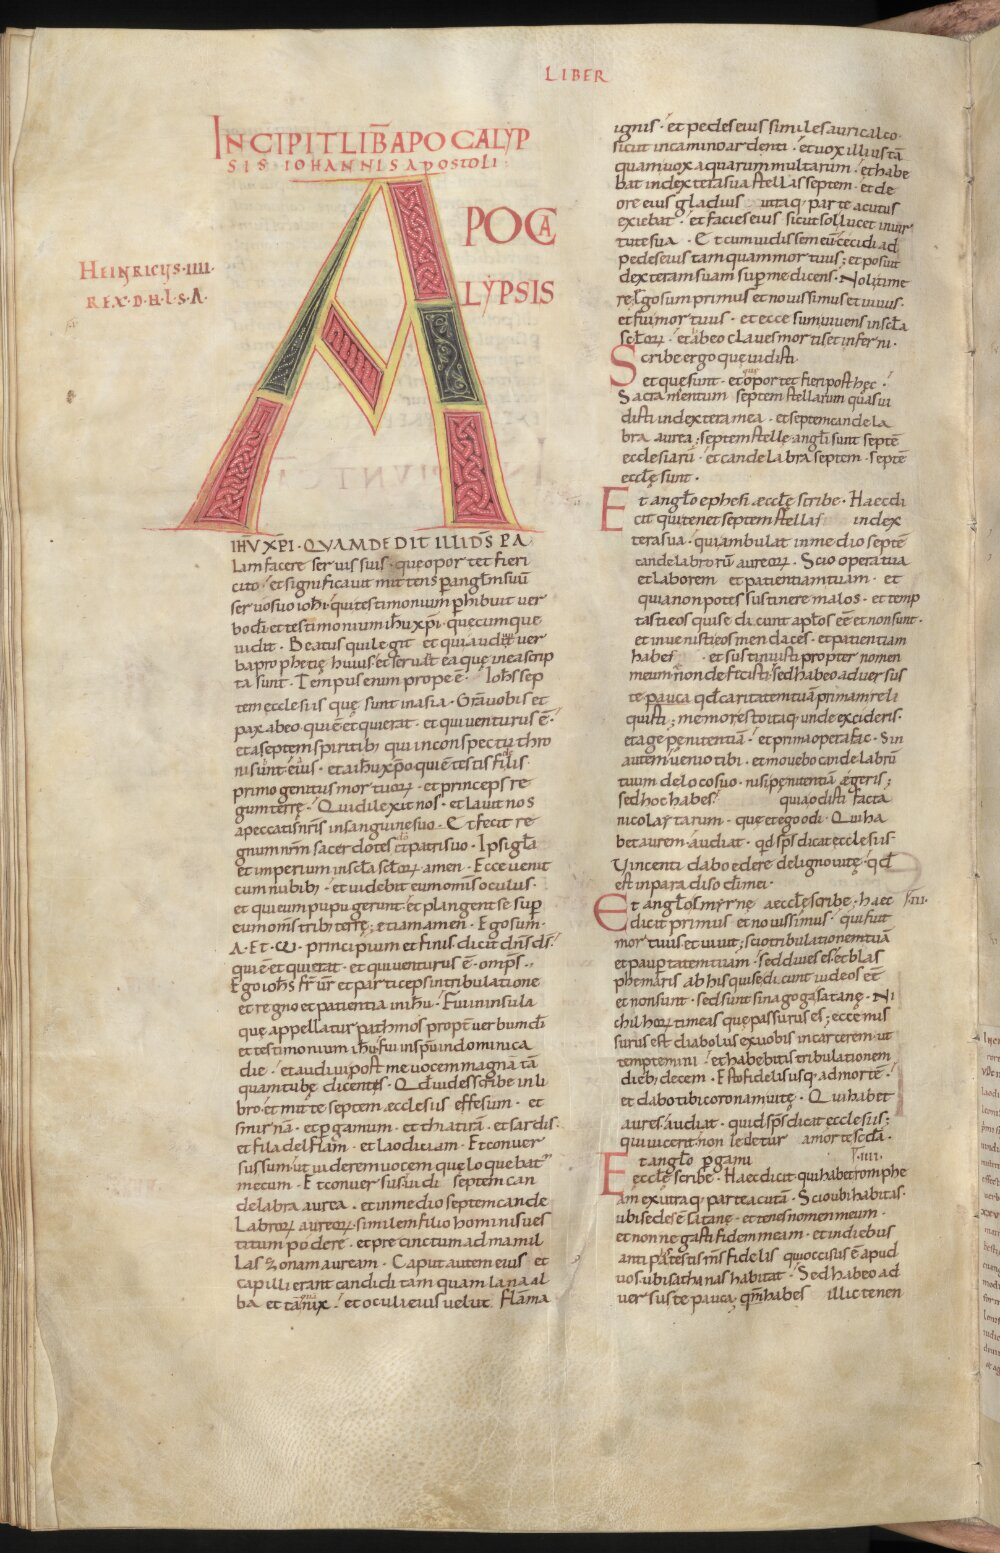 LIBER
INCIPIT LIB̄ APOCALYP
SIS · IOHANNIS APOSTOLI ·
APOCA
LYPSIS
HEINRICYS · IIII ·
REX · D · H · L · S · A ·
IHV XPI · QVAM DEDIT ILLI DS̄ PA
Lam facere servis suis · quę oportet fieri
cito · et significavit mittens p angłm suū
servo suo ioħi · qui testimonium phibuit ver
bo di · et testimonium ihu xpi · quęcumque
vidit · Beatus qui legit et qui audit ver
ba prophetię huius et servat ea quę in ea scrip
ta sunt · Tempus enim prope ē · Iohs sep
tem ecclesiis quę sunt in asia · Gra vobis et
pax ab eo qui ē et qui erat · et qui venturus ē ·
et a septem spiritib; qui in conspectu thro
ni sunt eius · et a ihu xpo qui ē testis fidelis
primogenitus mortuoꝝ · et princeps re
gum terrę · Qui dilexit nos · et lavit nos
a peccatis nr̄is in sanguine suo · Et fecit re
gnum nr̄m sacerdotes do et patri suo · Ipsi głia
et imperium in scła scłoꝝ · amen · Ecce venit
cum nubib; · et videbit eum omnis oculus ·
et qui eum pupugerunt · et plangent se sup
eum oms trib; terrę ; etiam amen · Ego sum ·
A · Et · ω · principium et finis dicit dns ds ·
qui ē et qui erat · et qui venturus ē · omps ·
Ego iohs fr̄ ur̄ et particeps in tribulatione
et regno et patientia in ihu · Fui in insula
quę appellatur pathmos propt verbum di
et testimonium ihu · fui in spu in dominica
die · et audivi post me vocem magnā tā
quam tubę dicentes · Qd vides scribe in li
bro · et mitte septem æcclesiis effesum · et
smirnā · et pgamum · et thiatirā · et sardis ·
et filadelfiam · et laoditiam · Et conver
sus sum ut viderem vocem que loquebat
mecum · Et conversus vidi septem can
delabra aurea · et in medio septem cande
Labroꝝ aureoꝝ · similem filio hominis ves
titum podere · et precinctum ad mamil
Las zonam auream · Caput autem eius et
capilli erant candidi tamquam lana al
ba et tāquā nix · et oculi eius velut flāma
ignis · et pedes eius similes auricalco ·
sicut in camino ardenti · et vox illius tā
quam vox aquarum multarum · et habe
bat in dextera sua stellas septem · et de
ore eius gladius utraq; parte acutus
exiebat · et facies eius sicut sol lucet in vir
tute sua · Et cum vidissem eū cecidi ad
pedes eius tamquam mortuus ; et posuit
dexteram suam sup me dicens · Noli time
re · Ego sum primus et novissimus et vivus ·
et fui mortuus · et ecce sum vivens in scła
scłoꝝ · et abeo claves mortis et inferni ·
Scribe ergo quę vidisti ·
et quę sunt · et quę oportet fieri post hęc ·
Sacramentum septem stellarum quas vi
disti in dextera mea · et septem candela
bra aurea ; septem stellę angłi sunt septē
ecclesiarū · et candelabra septem · septē
ecclę sunt ·
Et angło ephesi æcclę scribe · Haec di
cit qui tenet septem stellas in dex
tera sua · qui ambulat in medio septē
candelabrorū aureoꝝ · Scio opera tua
et laborem et patientiam tuam · et
quia non potes sustinere malos · et temp
tasti eos qui se dicunt apłos eē et non sunt ·
et invenisti eos mendaces · et patientiam
habes · et sustinuisti propter nomen
meum · non defecisti · sed habeo adversus
te pauca qd caritatem tuā primam reli
quisti ; memor esto itaq; unde excideris ·
et age penitentiā · et prima opera fac · Sin
autem venio tibi · et movebo candelabrū
tuum de loco suo · nisi penitentiā ægeris ;
sed hoc habes quia odisti facta
nicolaytarum · quę et ego odi · Qui ha
bet aurem · audiat · qd sps dicat ecclesiis
Vincenti dabo edere de ligno vitę · qd
est in paradiso di mei ·
Et angło smyrnę æcclę scribe ; haec
dicit primus et novissimus · qui fuit
mortuus et vivit ; scio tribulationem tuā
et paupertatem tuam · sed dives es · et blas
phemaris ab his qui se dicunt iudeos eē
et non sunt · sed sunt sinagoga satanę · Ni
chil hoꝝ timeas quę passurus es ; ecce mis
surus est diabolus ex vobis in carcerem ut
temptemini · et habebitis tribulationem
dieb; decem · Esto fidelis usq; ad mortē ·
et dabo tibi coronam vitę · Qui habet
aures audiat · quid sps dicat ecclesiis ;
qui vicerit non ledetur a morte scda ·
Et angło pgami
ecclę scribe · Haec dicit · qui habet romphe
am ex utraq; parte acutā · Scio ubi habitas ·
ubi sedes ē satanę · et tenes nomen meum ·
et non negasti fidem meam · et in diebus
antipas testis ms fidelis qui occisus ē apud
vos ubi sathanas habitat · Sed habeo ad
versus te pauca, qm habes illic tenen